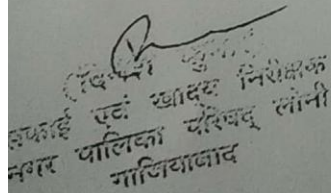 सफाई एवं खाद्य निरीक्षक
नगर पालिका परिषद् लोनी
गाजियाबाद